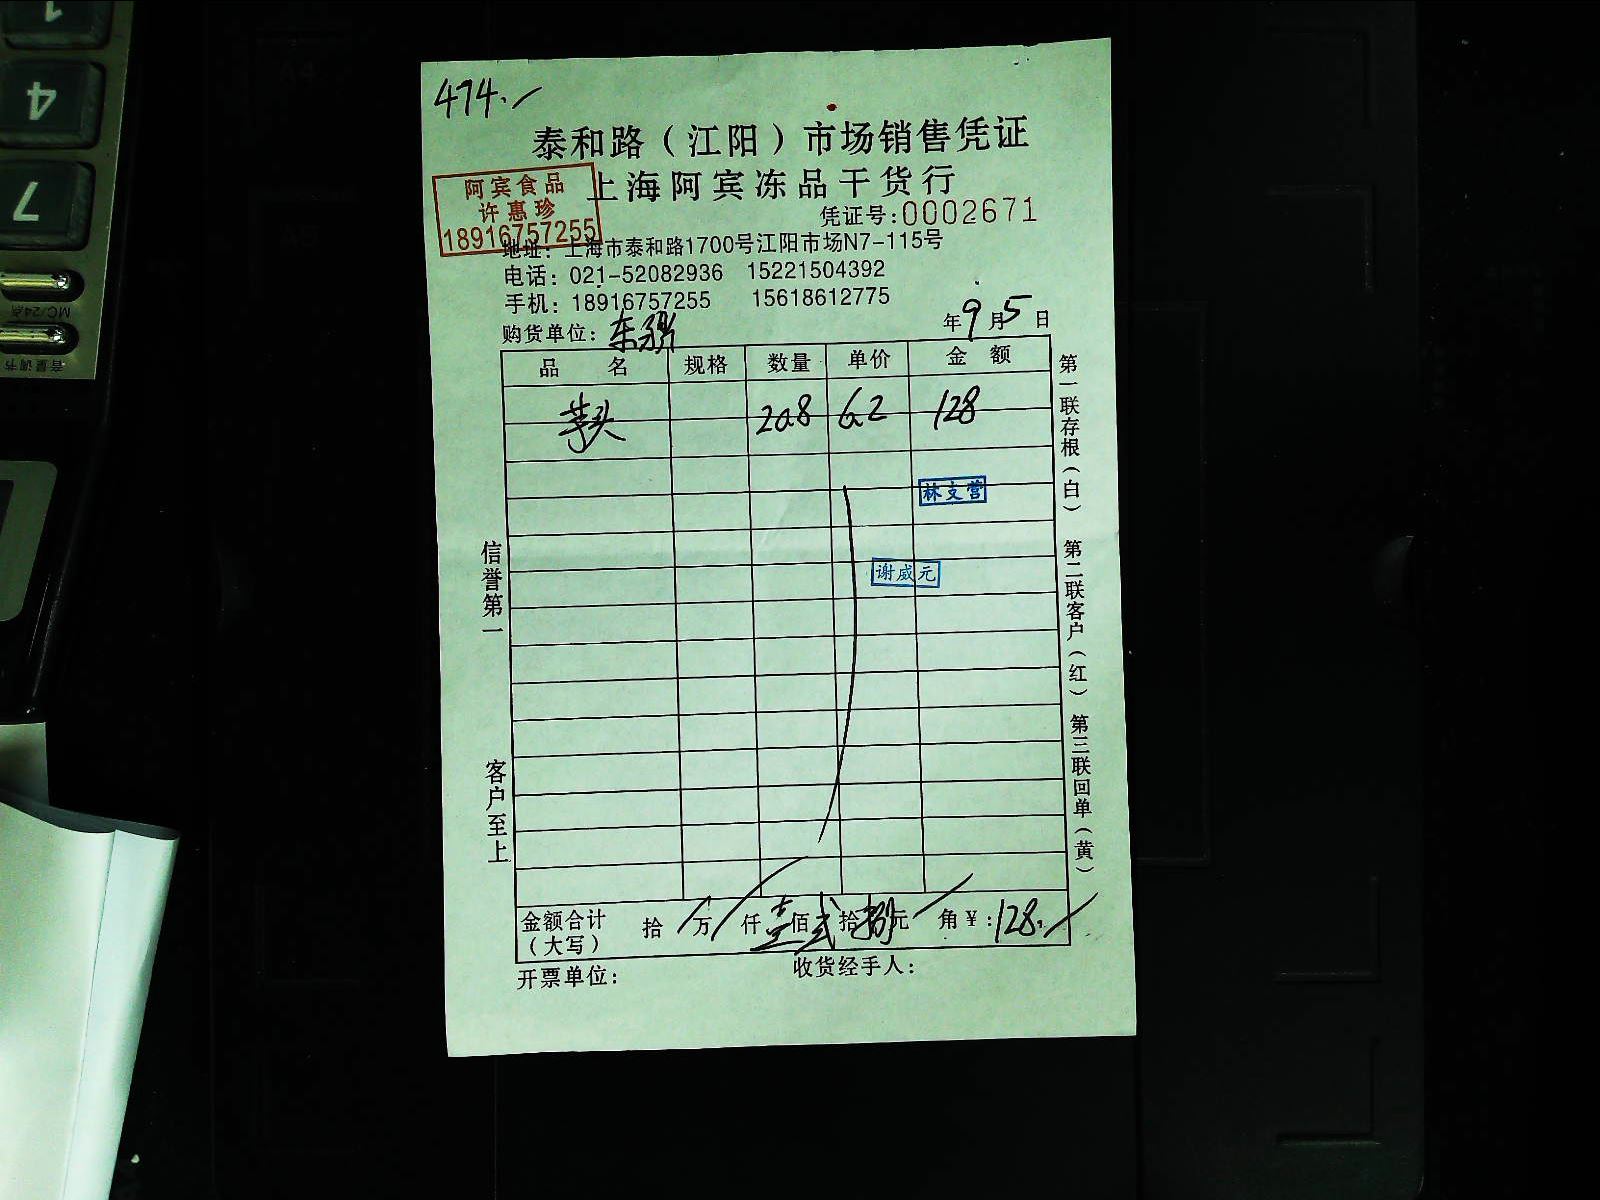 474.
泰和路（江阳）市场销售凭证
上海阿宾冻品干货行
阿宾食品
许惠珍
18916757255
凭证号:0002671
地址：上海市泰和路1700号江阳市场N7-115号
电话：021-52082936 15221504392
手机：18916757255 15618612775
购货单位： 年9月5日
品名 规格 数量 单价 金额
芋头 20.8 6.2 128
林支营
谢威元
信誉第一
客户至上
第一联存根（白）
第二联客户（红）
第三联回单（黄）
金额合计（大写） 拾 万 仟 壹佰 贰拾 捌元 角 ¥:128.
开票单位： 收货经手人：
4
7
MC/24点
音量调节